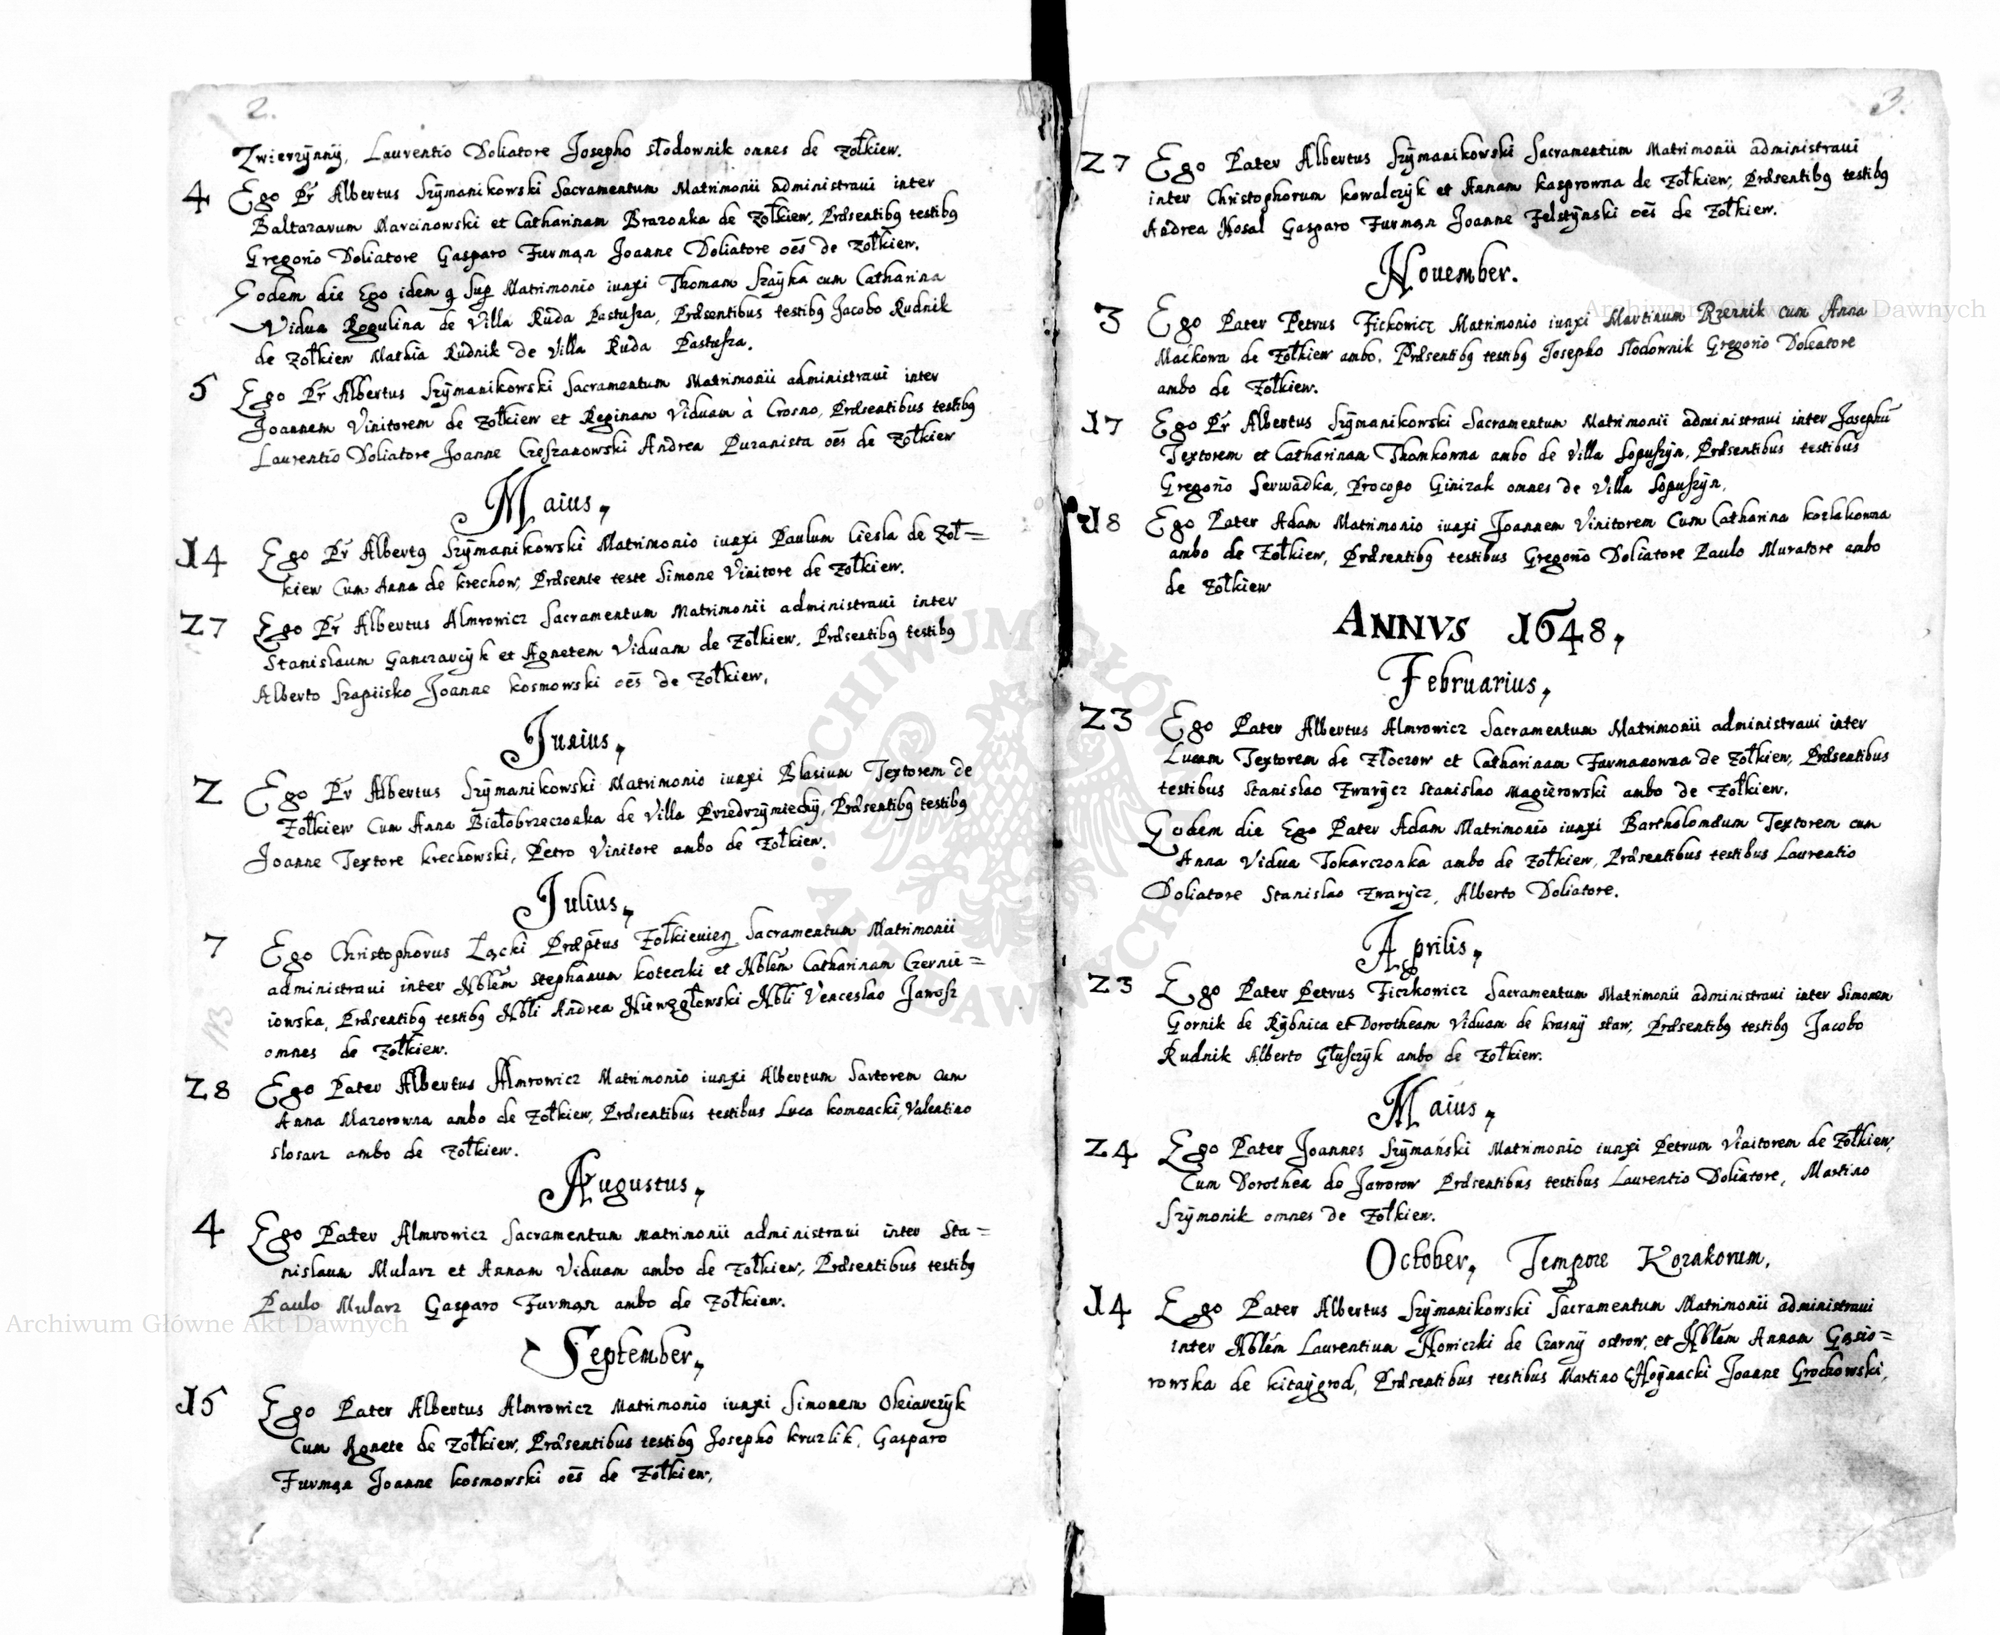 2.
Zwierzÿnnÿ, Laurentio Doliatore Josepho Słodownik omnes de Zołkiew.
4 Ego Pr Albertus Szÿmanikowski Sacramentum Matrimonii administravi inter
Baltazarum Marcinowski et Catharinam Brazonka de Zołkiew, Præsentibg testibg
Gregorio Doliatore Gasparo Furman Joanne Doliatore oēs de Zołkiew.
Eodem die Ego idem q Sup Matrimonio iunxi Thomam Szaÿka cum Catharina
Vidua Rogulina de Villa Ruda Pastusza, Præsentibus testibg Jacobo Rudnik
de Zołkiew Mathia Rudnik de Villa Ruda Pastusza.
5 Ego Pr Albertus Szÿmanikowski Sacramentum Matrimonii administravi inter
Joannem Vinitorem de Zołkiew et Reginam Viduam à Crosno, Præsentibus testibg
Laurentio Doliatore Joanne Czeszanowski Andrea Puzanista oēs de Zołkiew
Maius,
14 Ego Pr Albertg Szÿmanikowski Matrimonio iunxi Paulum Ciesla de Zoł=
kiew Cum Anna de Krechow, Præsente teste Simone Vinitore de Zołkiew.
27 Ego Pr Albertus Almrowicz Sacramentum Matrimonii administravi inter
Stanislaum Ganczarcÿk et Agnetem Viduam de Zołkiew, Præsentibg testibg
Alberto Szapiisko Joanne Kosmowski oēs de Zołkiew,
Junius,
2 Ego Pr Albertus Szÿmanikowski Matrimonio iunxi Blasium Textorem de
Zołkiew Cum Anna Białobrzeczonka de Villa Przedrzÿmiechÿ, Præsentibg testibg
Joanne Textore Krechowski, Petro Vinitore ambo de Zołkiew.
Julius,
7 Ego Christophorus Łącki Præptus Zołkievien Sacramentum Matrimonii
administravi inter Nblem Stephanum Koteczki et Nblem Catharinam Czernie=
iowska, Præsentibg testibg Nbli Andrea Niewzgłowski Nbli Venceslao Jarosz
omnes de Zołkiew.
28 Ego Pater Albertus Almrowicz Matrimonio iunxi Albertum Sartorem cum
Anna Mazorowna ambo de Zołkiew, Præsentibus testibus Luca Komnacki, Valentino
Slosarz ambo de Zołkiew.
Augustus,
4 Ego Pater Almrowicz Sacramentum Matrimonii administravi inter Sta=
nislaum Mularz et Annam Viduam ambo de Zołkiew, Præsentibus testibg
Paulo Mularz Gasparo Furman ambo de Zołkiew.
September,
15 Ego Pater Albertus Almrowicz Matrimonio iunxi Simonem Oleiarczÿk
Cum Agnete de Zołkiew, Præsentibus testibg Josepho Kruzlik, Gasparo
Furman Joanne Kosmowski oēs de Zołkiew,
3.
27 Ego Pater Albertus Szÿmanikowski Sacramentum Matrimonii administravi
inter Christophorum Kowalczÿk et Annam Kasprowna de Zołkiew, Præsentibg testibg
Andrea Kosal Gasparo Furman Joanne Felstÿnski oēs de Zołkiew.
November.
3 Ego Pater Petrus Fickowicz Matrimonio iunxi Martinum Rzernik cum Anna
Maćkowa de Zołkiew ambo, Præsentibg testibg Josepho Słodownik Gregorio Doleatore
ambo de Zołkiew.
17 Ego Pr Albertus Szÿmanikowski Sacramentum Matrimonii administravi inter Josephū
Textorem et Catharinam Thomkowna ambo de Villa Łopuszÿn, Præsentibus testibus
Gregorio Serwadka, Procopo Ginizak omnes de Villa Łopuszÿn,
18 Ego Pater Adam Matrimonio iunxi Joannem Vinitorem Cum Catharina Kozlakowna
ambo de Zołkiew, Præsentibg testibus Gregorio Doliatore Paulo Muratore ambo
de Zołkiew
ANNVS 1648,
Februarius,
23 Ego Pater Albertus Almrowicz Sacramentum Matrimonii administravi inter
Lucam Textorem de Złoczow et Catharinam Furmanowna de Zołkiew, Præsentibus
testibus Stanislao Zwarÿcz Stanislao Magierowski ambo de Zołkiew.
Eodem die Ego Pater Adam Matrimonio iunxi Bartholomæum Textorem cum
Anna Vidua Tokarczonka ambo de Zołkiew, Præsentibus testibus Laurentio
Doliatore Stanislao Zwarÿcz, Alberto Doliatore.
Aprilis,
23 Ego Pater Petrus Ficzkowicz Sacramentum Matrimonii administravi inter Simonem
Gornik de Rÿbnica et Dorotheam Viduam de Krasnÿ staw, Præsentibg testibg Jacobo
Rudnik Alberto Głuszczÿk ambo de Zołkiew.
Maius,
24 Ego Pater Joannes Szÿmański Matrimonio iunxi Petrum Vinitorem de Zołkiew,
Cum Dorothea de Jaworow Præsentibus testibus Laurentio Doliatore, Martino
Szÿmonik omnes de Zołkiew.
October, Tempore Kozakorum,
14 Ego Pater Albertus Szÿmanikowski Sacramentum Matrimonii administravi
inter Nblem Laurentium Howiczki de Czarnÿ ostrow, et Nblem Annam Gąsio=
rowska de Kitaÿgrod, Præsentibus testibus Martino Choÿnacki Joanne Grochowski,
Archiwum Główne Akt Dawnych
Archiwum Główne Akt Dawnych
ARCHIWUM GŁÓWNE AKT DAWNYCH